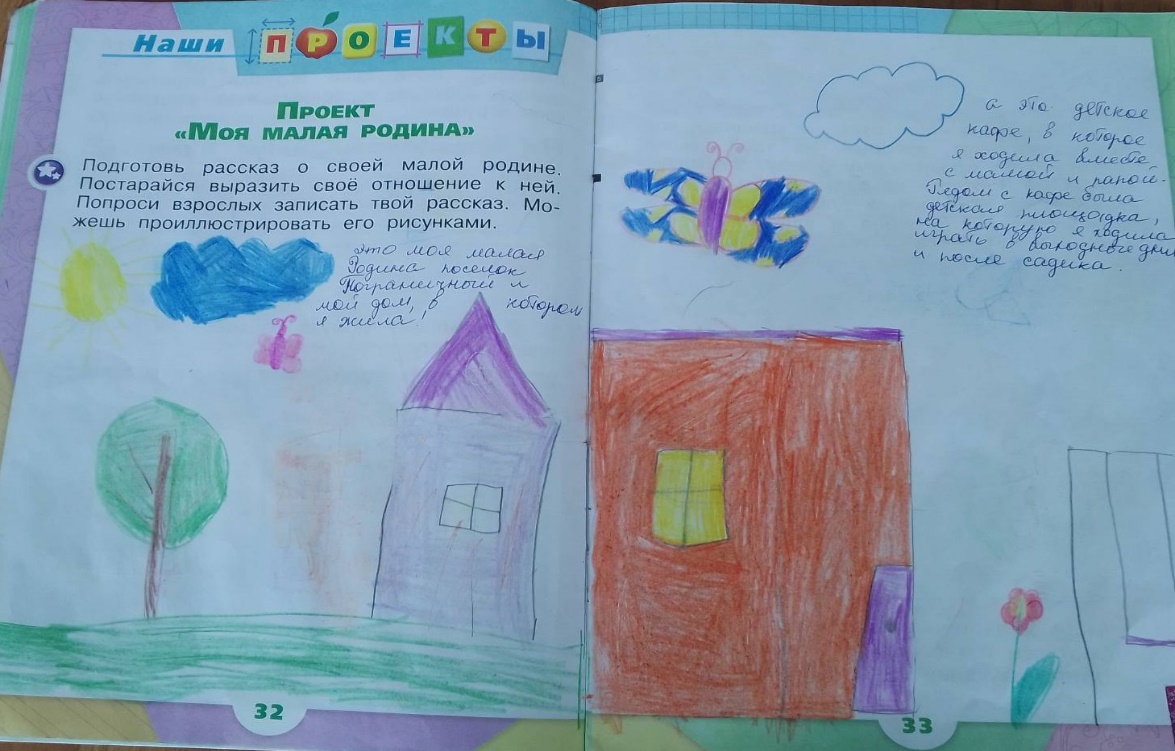 Наши ПРОЕКТЫ
ПРОЕКТ
«МОЯ МАЛАЯ РОДИНА»
Подготовь рассказ о своей малой родине.
Постарайся выразить своё отношение к ней.
Попроси взрослых записать твой рассказ. Мо-
жешь проиллюстрировать его рисунками.
Это моя малая
Родина поселок
Пограничный и
мой дом, в котором
я жила!
32
а это детское
кафе, в которое
я ходила вместе
с мамой и папой.
Рядом с кафе была
детская площадка,
на которую я ходила
играть в выходные дни
и после садика.
33